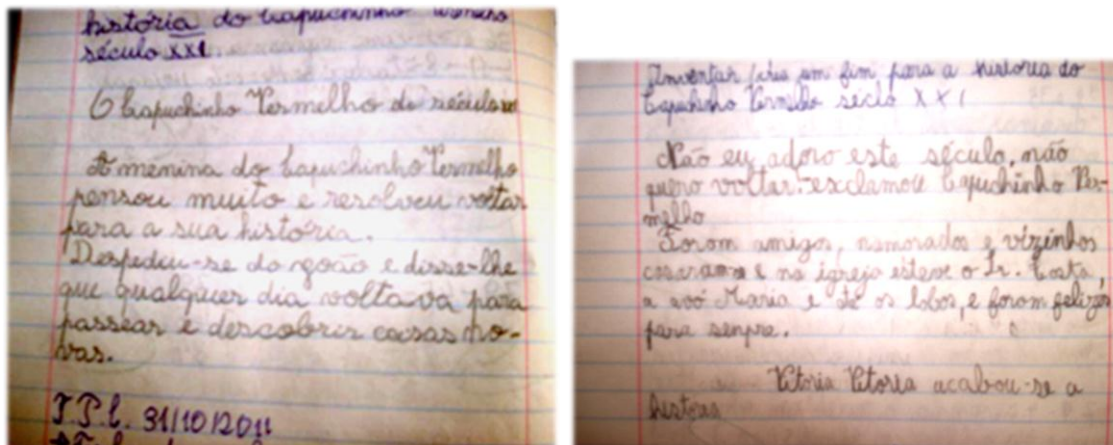 história do Capuchinho Vermelho
século XXI.
O Capuchinho Vermelho do século XXI
A menina do Capuchinho Vermelho
pensou muito e resolveu voltar
para a sua história.
Despediu-se do João e disse-lhe
que qualquer dia voltava para
passear e descobrir coisas no-
vas.
T.P.C. 31/10/2011
Inventar um fim para a história do
Capuchinho Vermelho séclo XXI
Não eu adoro este século, não
quero voltar.-exclamou Capuchinho Ver-
melho
Foram amigos, namorados e vizinhos
casaram e na igreja esteve o Sr. Costa,
a avó Maria e até os lobos, e foram felizes
para senpre.
Vitoria Vitoria acabou-se a
historia